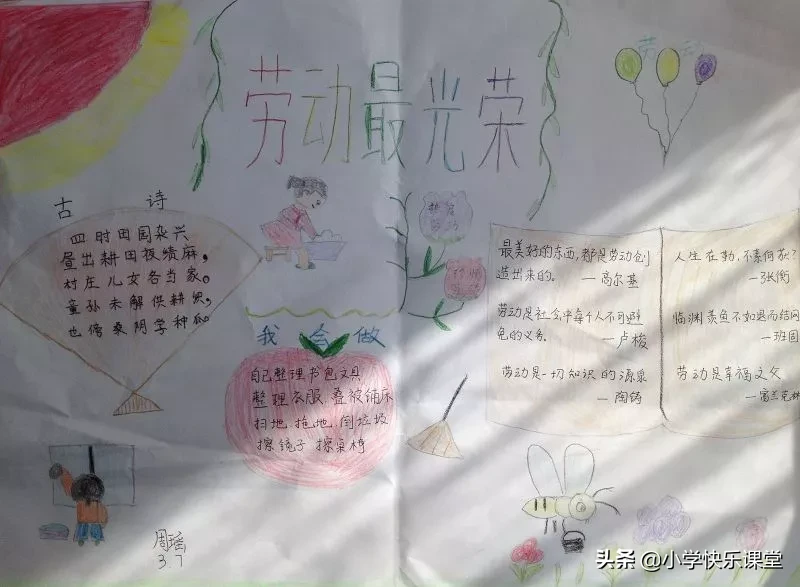 劳动最光荣
劳动
古诗
四时田园杂兴
昼出耘田夜绩麻，
村庄儿女各当家。
童孙未解供耕织，
也傍桑阴学种瓜。
热爱
劳动
珍惜
我会做
自己整理书包文具
整理衣服 叠被铺床
扫地 拖地 倒垃圾
擦镜子 擦桌椅
最美好的东西，都是劳动创
造出来的。
—高尔基
劳动是社会中每个人不可避
免的义务。
—卢梭
劳动是一切知识的源泉
—陶铸
人生在勤，不索何获？
—张衡
临渊羡鱼不如退而结网
—班固
劳动是幸福之父
—富兰克林
周瑶
3.7
头条 @小学快乐课堂